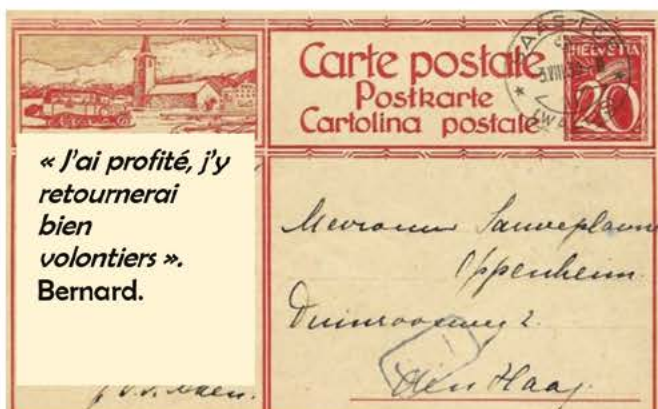 Carte postale
Postkarte
Cartolina postale
HELVETIA
20
« J'ai profité, j'y
retournerai
bien
volontiers ».
Bernard.
Mevrouw
Oppenheim
den Haag